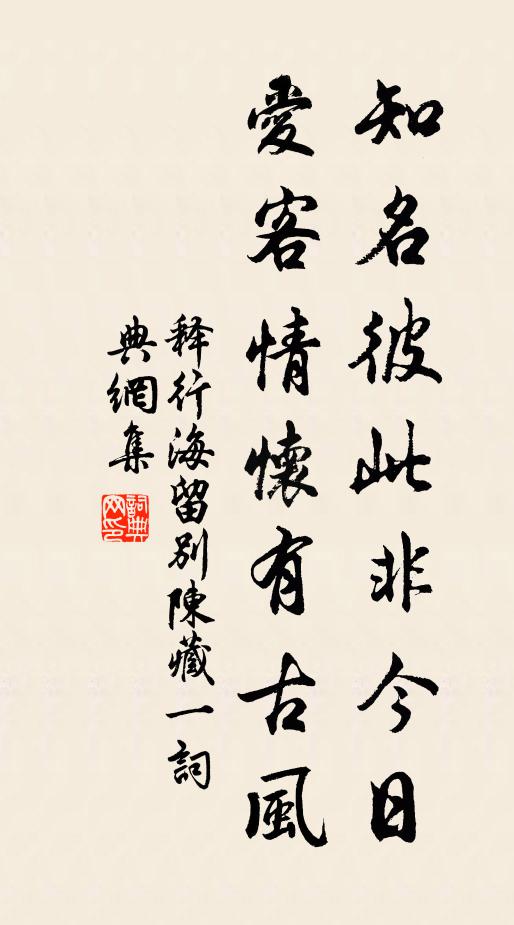 知名彼此非今日
愛客情懷有古風
释行海留別陳藏一詞
典網集
詞典网印